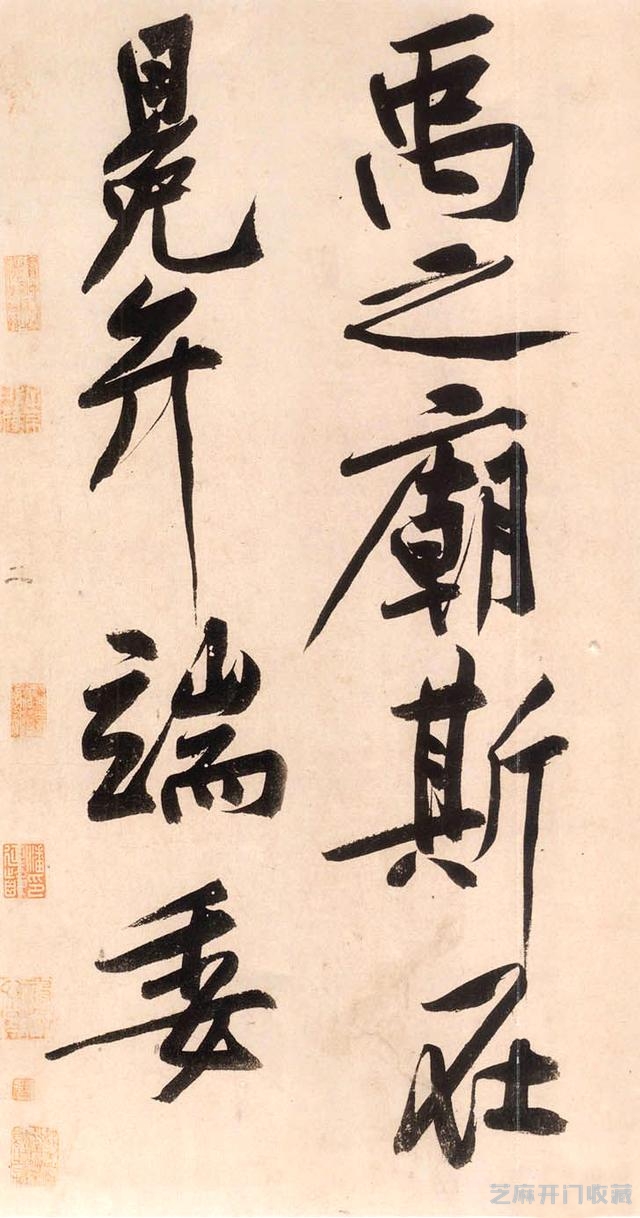 禹之廟斯在
冕弁端委
二
芝麻开门收藏